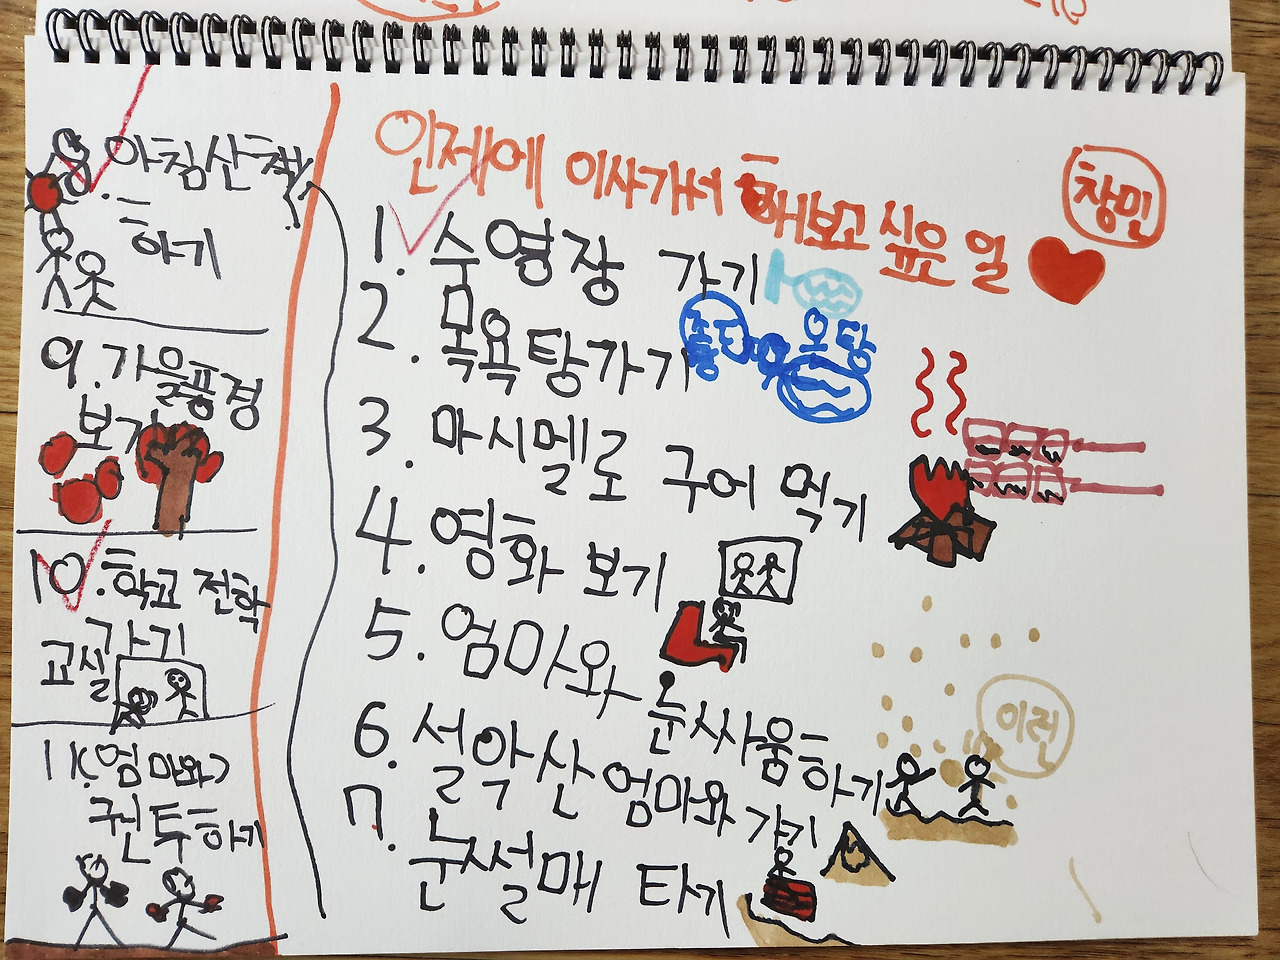 인제에 이사가서 해보고 싶은 일
창민
1. 수영장 가기
2. 목욕탕가기
퐁당
온탕
3. 마시멜로 구어 먹기
4. 영화 보기
5. 엄마와 눈싸움하기
이런
6. 설악산 엄마와 가기
7. 눈썰매 타기
8. 아침산책
하기
9. 가을풍경
보기
10. 학교 전학
가기
교실
11. 엄마와
권투하기